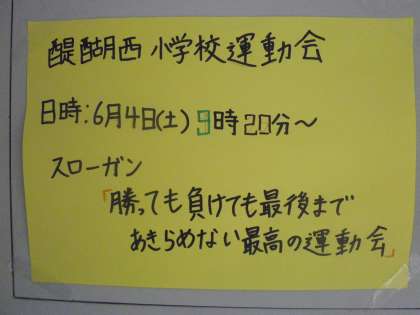 醍醐西 小学校運動会
日時:6月4日(土) 9時20分〜
スローガン
「勝っても負けても最後まで
あきらめない最高の運動会」